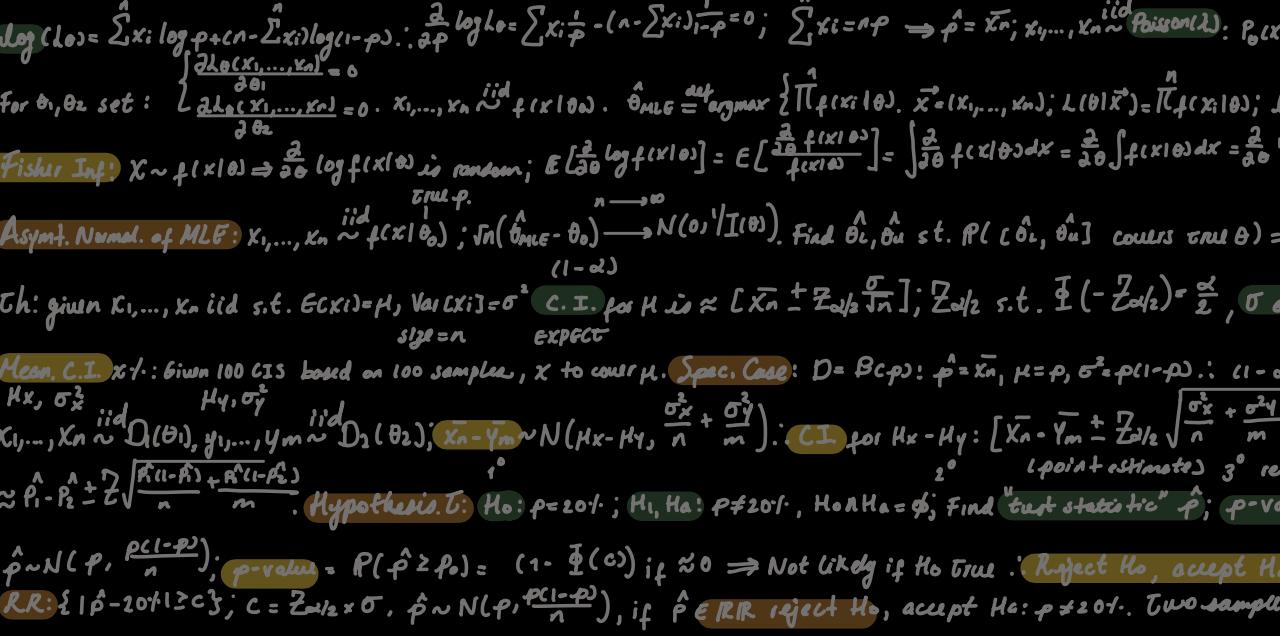 log(Lθ) = Σ̂ xi log p + (n - Σ̂ xi) log(1-p). ∴ ∂/∂p log Lθ = Σ xi 1/p - (n - Σ xi) 1/1-p = 0 ; Σ xi = np ⇒ p̂ = x̄n ; x1,..., xn iid~ Poisson(λ) : Pθ(x
For θ1, θ2 set : { ∂Lθ(x1,...,xn)/∂θ1 = 0 ∂Lθ(x1,...,xn)/∂θ2 = 0 . x1,..., xn iid~ f(x|θ0) . θ̂MLE def= argmax { Π̂ f(xi|θ) . x⃗ = (x1,..., xn) ; L(θ|x⃗) = Π^n f(xi|θ) ;
Fisher Inf: X ~ f(x|θ) ⇒ ∂/∂θ log f(x|θ) is random ; E[∂/∂θ log f(x|θ)] = E[∂/∂θ f(x|θ) / f(x|θ)] = ∫ ∂/∂θ f(x|θ)dx = ∂/∂θ ∫ f(x|θ) dx = ∂/∂θ
true p. n ⟶ ∞
Asymt. Normal. of MLE: x1,..., xn iid~ f(x|θ0) ; √n(θ̂MLE - θ0) ⟶ N(0, 1/I(θ)) . Find θ̂L, θ̂u s.t. P( [θ̂L, θ̂u] covers true θ) =
(1-α)
Th: given x1,..., xn iid s.t. E(xi) = μ, Var[xi] = σ² C.I. for μ is ≈ [x̄n ± Zα/2 σ/√n] ; Zα/2 s.t. Φ(-Zα/2) = α/2 , σ
size = n EXPECT
Mean. C.I. x% : Given 100 CIS based on 100 samples, x to cover μ. Spec. Case : D = B(p) : p̂ = x̄n, μ = p, σ² = p(1-p) ∴ (1-α
μx, σx² μy, σy²
x1,..., xn iid~ D1(θ1), y1,..., ym iid~ D2(θ2) ; x̄n - ȳm ~ N(μx - μy, σx²/n + σy²/m) . ∴ C.I. for μx - μy : [x̄n - ȳm ± Zα/2 √σx²/n + σ²y/m
1⁰ 2⁰ (point estimate) 3⁰ re
≈ p̂1 - p̂2 ± Z √p̂1(1-p̂1)/n + p̂2(1-p̂2)/m . Hypothesis. T: H0: p = 20% ; H1, Ha: p ≠ 20% , H0 ∩ Ha = ϕ ; Find "test statistic" p̂ ; p-va
p̂ ~ N(p, p(1-p)/n) ; p-value = P(p̂ ≥ p0) = (1 - Φ(c)) if ≈ 0 ⇒ Not likely if H0 true ∴ Reject H0, accept Ha
RR: { |p̂ - 20%| ≥ c} ; c = Zα/2 × σ . p̂ ~ N(p, p(1-p)/n) , if p̂ ∈ RR reject H0, accept Ha: p ≠ 20%. Two sample